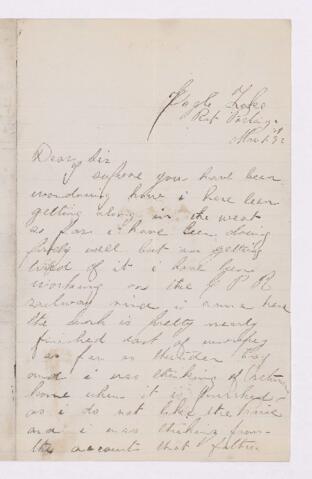 Eagle Lake
Rat Portage
Dear sir
supose you have been
wondering how i have been
getting along in the west
so far i have been doing
fairly well but am getting
tired of it i have been
working on the C P R
railway since i came here
the work is pretty nearly
finished east of winnipeg
as far as thunder Bay
and i was thinking of return
home when it is finished
as i do not like the
and i was thinking from
the accounts that father